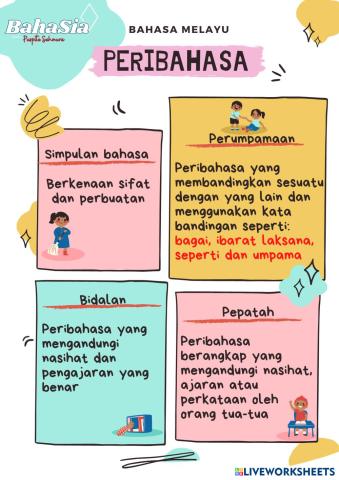 BahaSia
Puspita Sahmura
BAHASA MELAYU
PERIBAHASA
Simpulan bahasa
Berkenaan sifat
dan perbuatan
Perumpamaan
Peribahasa yang
membandingkan sesuatu
dengan yang lain dan
menggunakan kata
bandingan seperti:
bagai, ibarat laksana,
seperti dan umpama
Bidalan
Peribahasa yang
mengandungi
nasihat dan
pengajaran yang
benar
Pepatah
Peribahasa
berangkap yang
mengandungi nasihat,
ajaran atau
perkataan oleh
orang tua-tua
LIVEWORKSHEETS